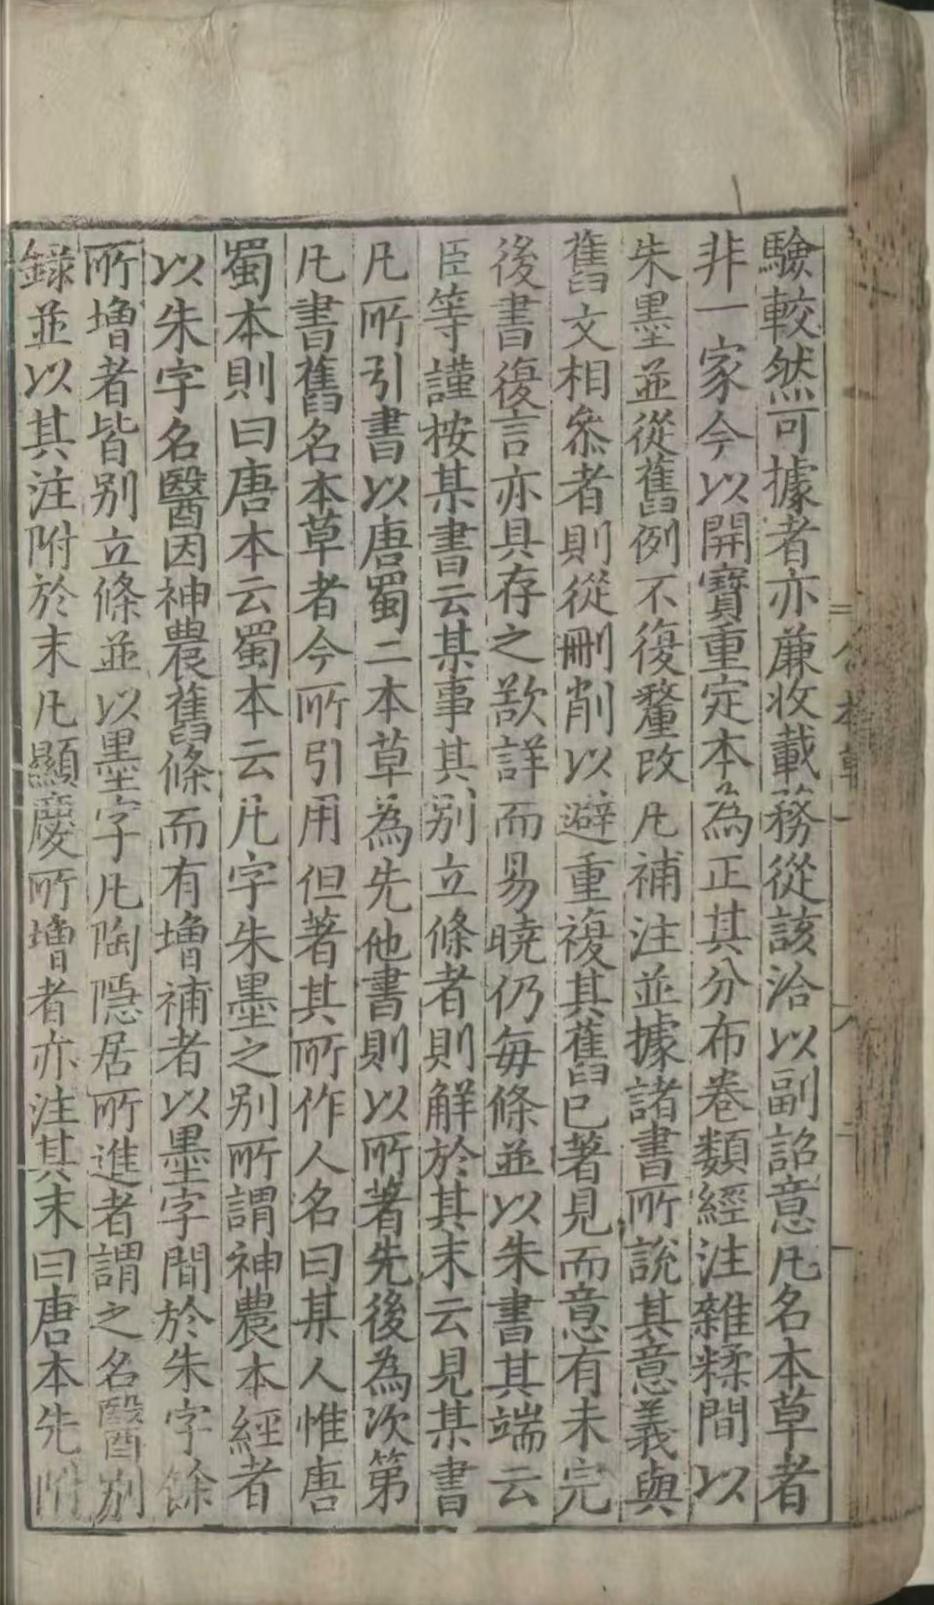 驗較然可據者亦兼收載務從該洽以副詔意凡名本草者
非一家今以開寶重定本為正其分布卷類經注雜糅間以
朱墨並從舊例不復釐改凡補注並據諸書所說其意義與
舊文相叅者則從刪削以避重複其舊已著見而意有未完
後書復言亦具存之欲詳而易曉仍每條並以朱書其端云
臣等謹按某書云某事其別立條者則解於其末云見某書
凡所引書以唐蜀二本草為先他書則以所著先後為次第
凡書舊名本草者今所引用但著其所作人名曰某人惟唐
蜀本則曰唐本云蜀本云凡字朱墨之别所謂神農本經者
以朱字名醫因神農舊條而有增補者以墨字間於朱字餘
所增者皆别立條並以墨字凡陶隱居所進者謂之名醫别
錄並以其注附於末凡顯慶所增者亦注其末曰唐本先附